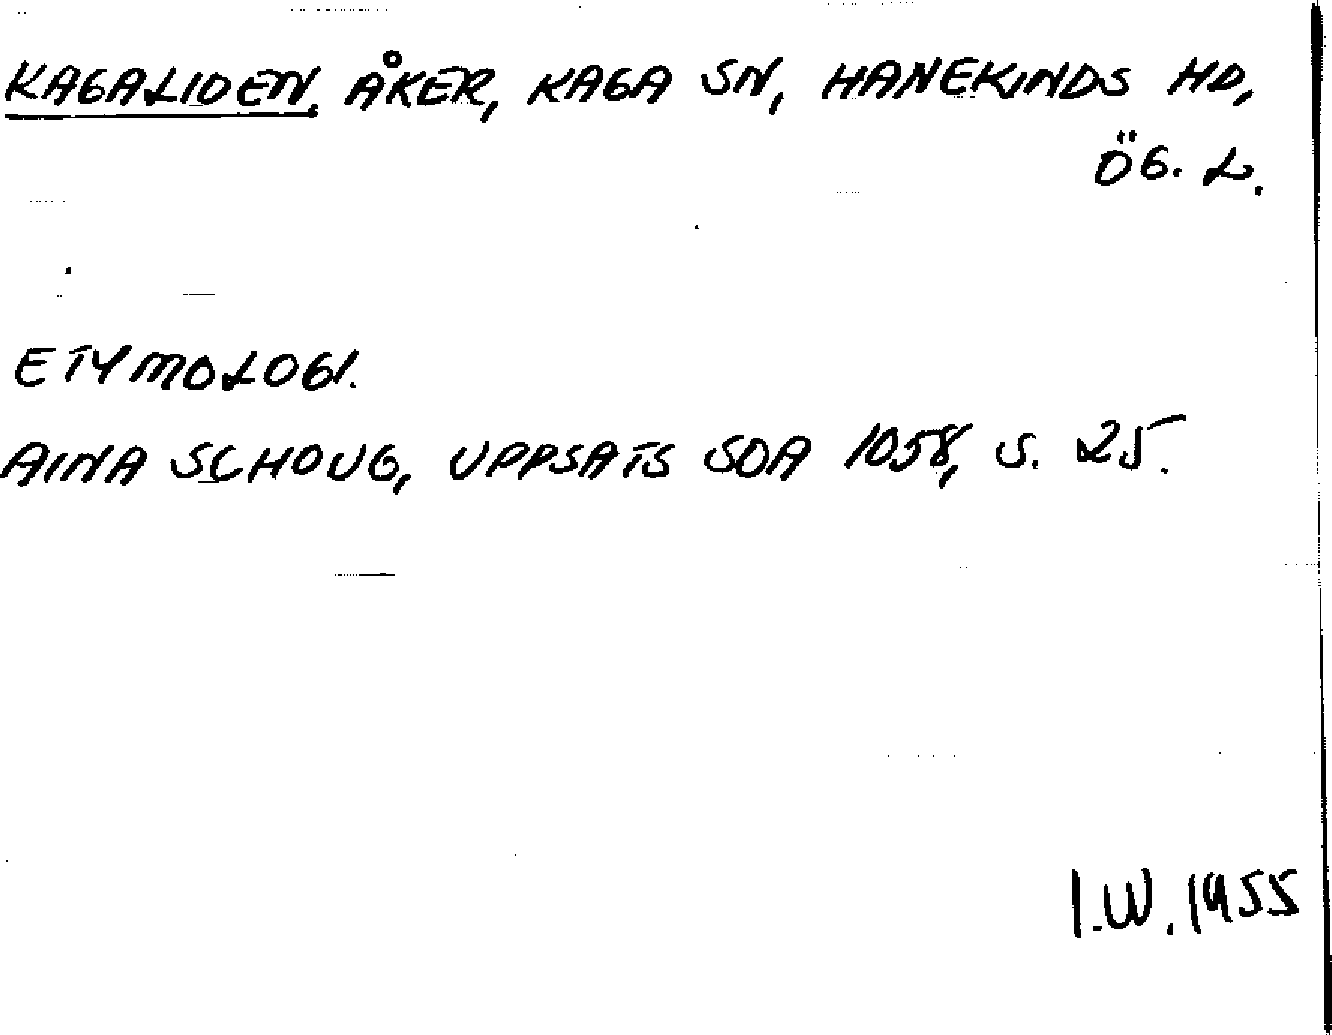 KAGALIDEN, ÅKER, KAGA SN, HANEKINDS HD,
ÖG. L.
ETYMOLOGI.
AINA SCHOUG, UPPSATS SOA 1058, S. 25.
I.W. 1955